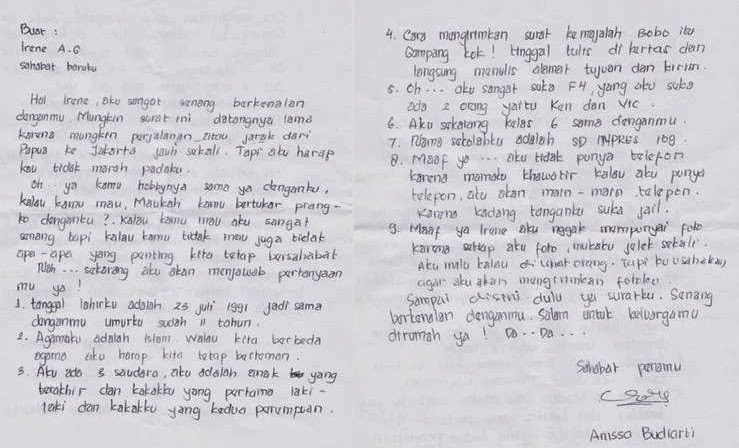 Buat :
Irene A.G
Sahabat baruku
Hai Irene, aku sangat senang berkenalan
denganmu. Mungkin surat ini datangnya lama
karena mungkin perjalanan atau jarak dari
Papua ke Jakarta jauh sekali. Tapi aku harap
kau tidak marah padaku.
Oh.. ya kamu hobbynya sama ya denganku,
kalau kamu mau, Maukah kamu bertukar prang-
ko denganku ?. Kalau kamu mau aku sangat
senang tapi kalau kamu tidak mau juga tidak
apa-apa yang penting kita tetap bersahabat
Nah ... sekarang aku akan menjawab pertanyaan
mu ya !
1. tanggal lahirku adalah 23 juli 1991 jadi sama
denganmu umurku sudah 11 tahun.
2. Agamaku adalah Islam. walau kita berbeda
agama aku harap kita tetap berteman.
3. Aku ada 3 saudara, aku adalah anak yang
terakhir dan kakakku yang pertama laki-
laki dan kakakku yang kedua perempuan.
4. Cara mengirimkan surat ke majalah Bobo itu
Gampang kok ! tinggal tulis di kertas dan
langsung menulis alamat tujuan dan kirim.
5. Oh ... aku sangat suka F4, yang aku suka
ada 2 orang yaitu Ken dan Vic.
6. Aku sekarang kelas 6 sama denganmu.
7. Nama sekolahku adalah SD INPRES 109.
8. Maaf ya ... aku tidak punya telepon
karena mamaku khawatir kalau aku punya
telepon, aku akan main-main telepon.
Karena kadang tanganku suka jail.
9. Maaf ya Irene aku nggak mempunyai foto
karena setiap aku foto, mukaku jelek sekali.
Aku malu kalau dilihat orang. Tapi ku usahakan
agar aku akan mengirimkan fotoku.
Sampai disini dulu ya suratku. Senang
berkenalan denganmu. Salam untuk keluargamu
dirumah ya ! Da .. Da ...
Sahabat penamu
Anissa Budiarti